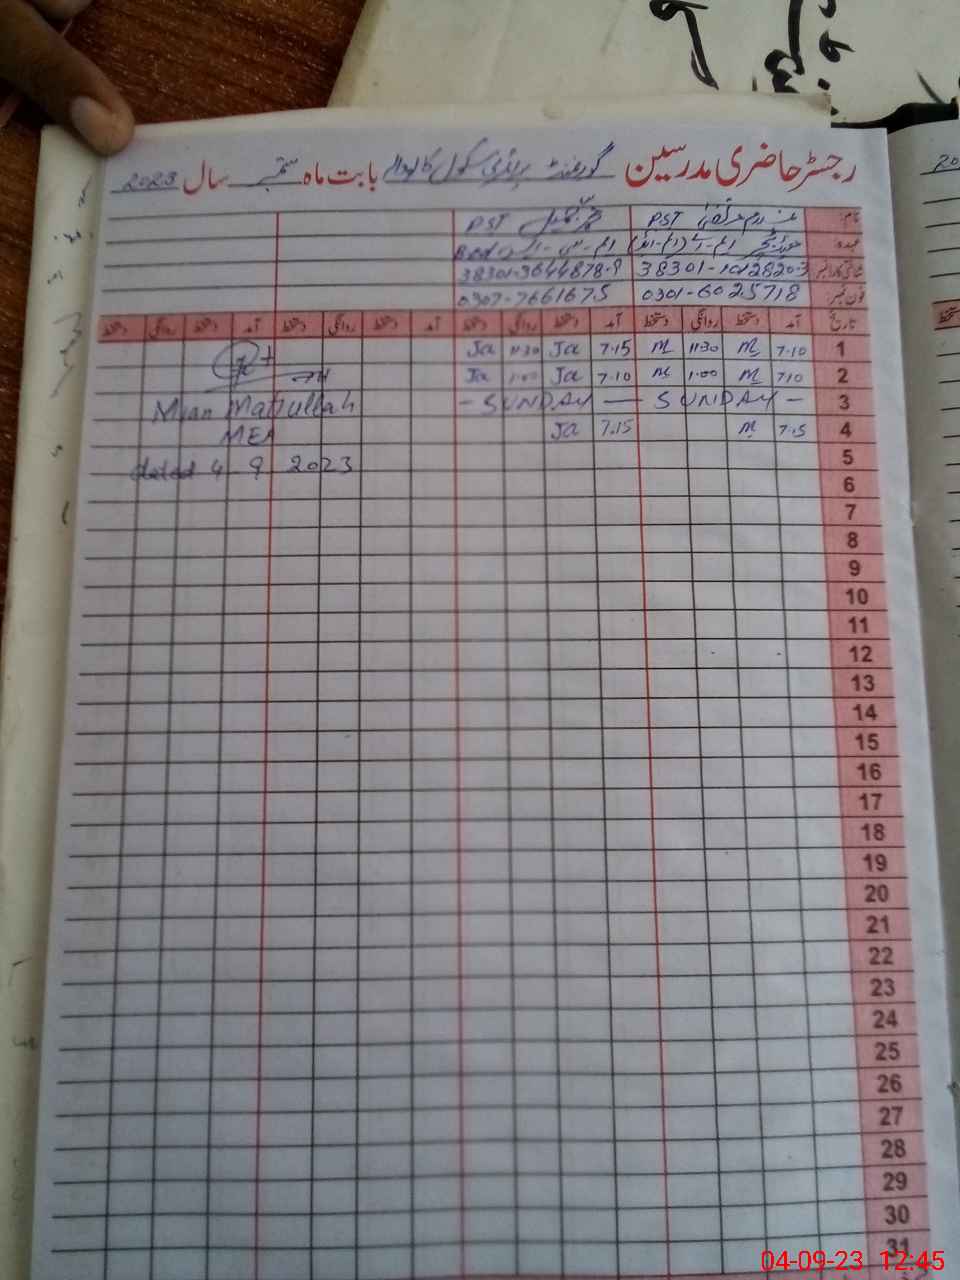 رجسٹر حاضری مدرسین گورنمنٹ پرائمری سکول بابت ماہ ستمبر سال 2023
نام: PST PST
عہدہ B.ed
شناختی کارڈ نمبر 38301-3644878-9
فون نمبر: 0301-6025718 0307-7661675
تاریخ آمد دستخط روانگی دستخط آمد دستخط روانگی دستخط آمد دستخط روانگی دستخط آمد دستخط روانگی دستخط
1 7.10 m 11:30 m 7.15 Ja 11:30 Ja
2 7.10 m 1.00 m 7.10 Ja 1.00 Ja
3 - SUNDAY - SUNDAY -
Mian Matiullah
4 7.15 m 7.15 Ja
MEA
dated 4 9 2023
5
6
7
8
9
10
11
12
13
14
15
16
17
18
19
20
21
22
23
24
25
26
27
28
29
30
31
04-09-23 12:45